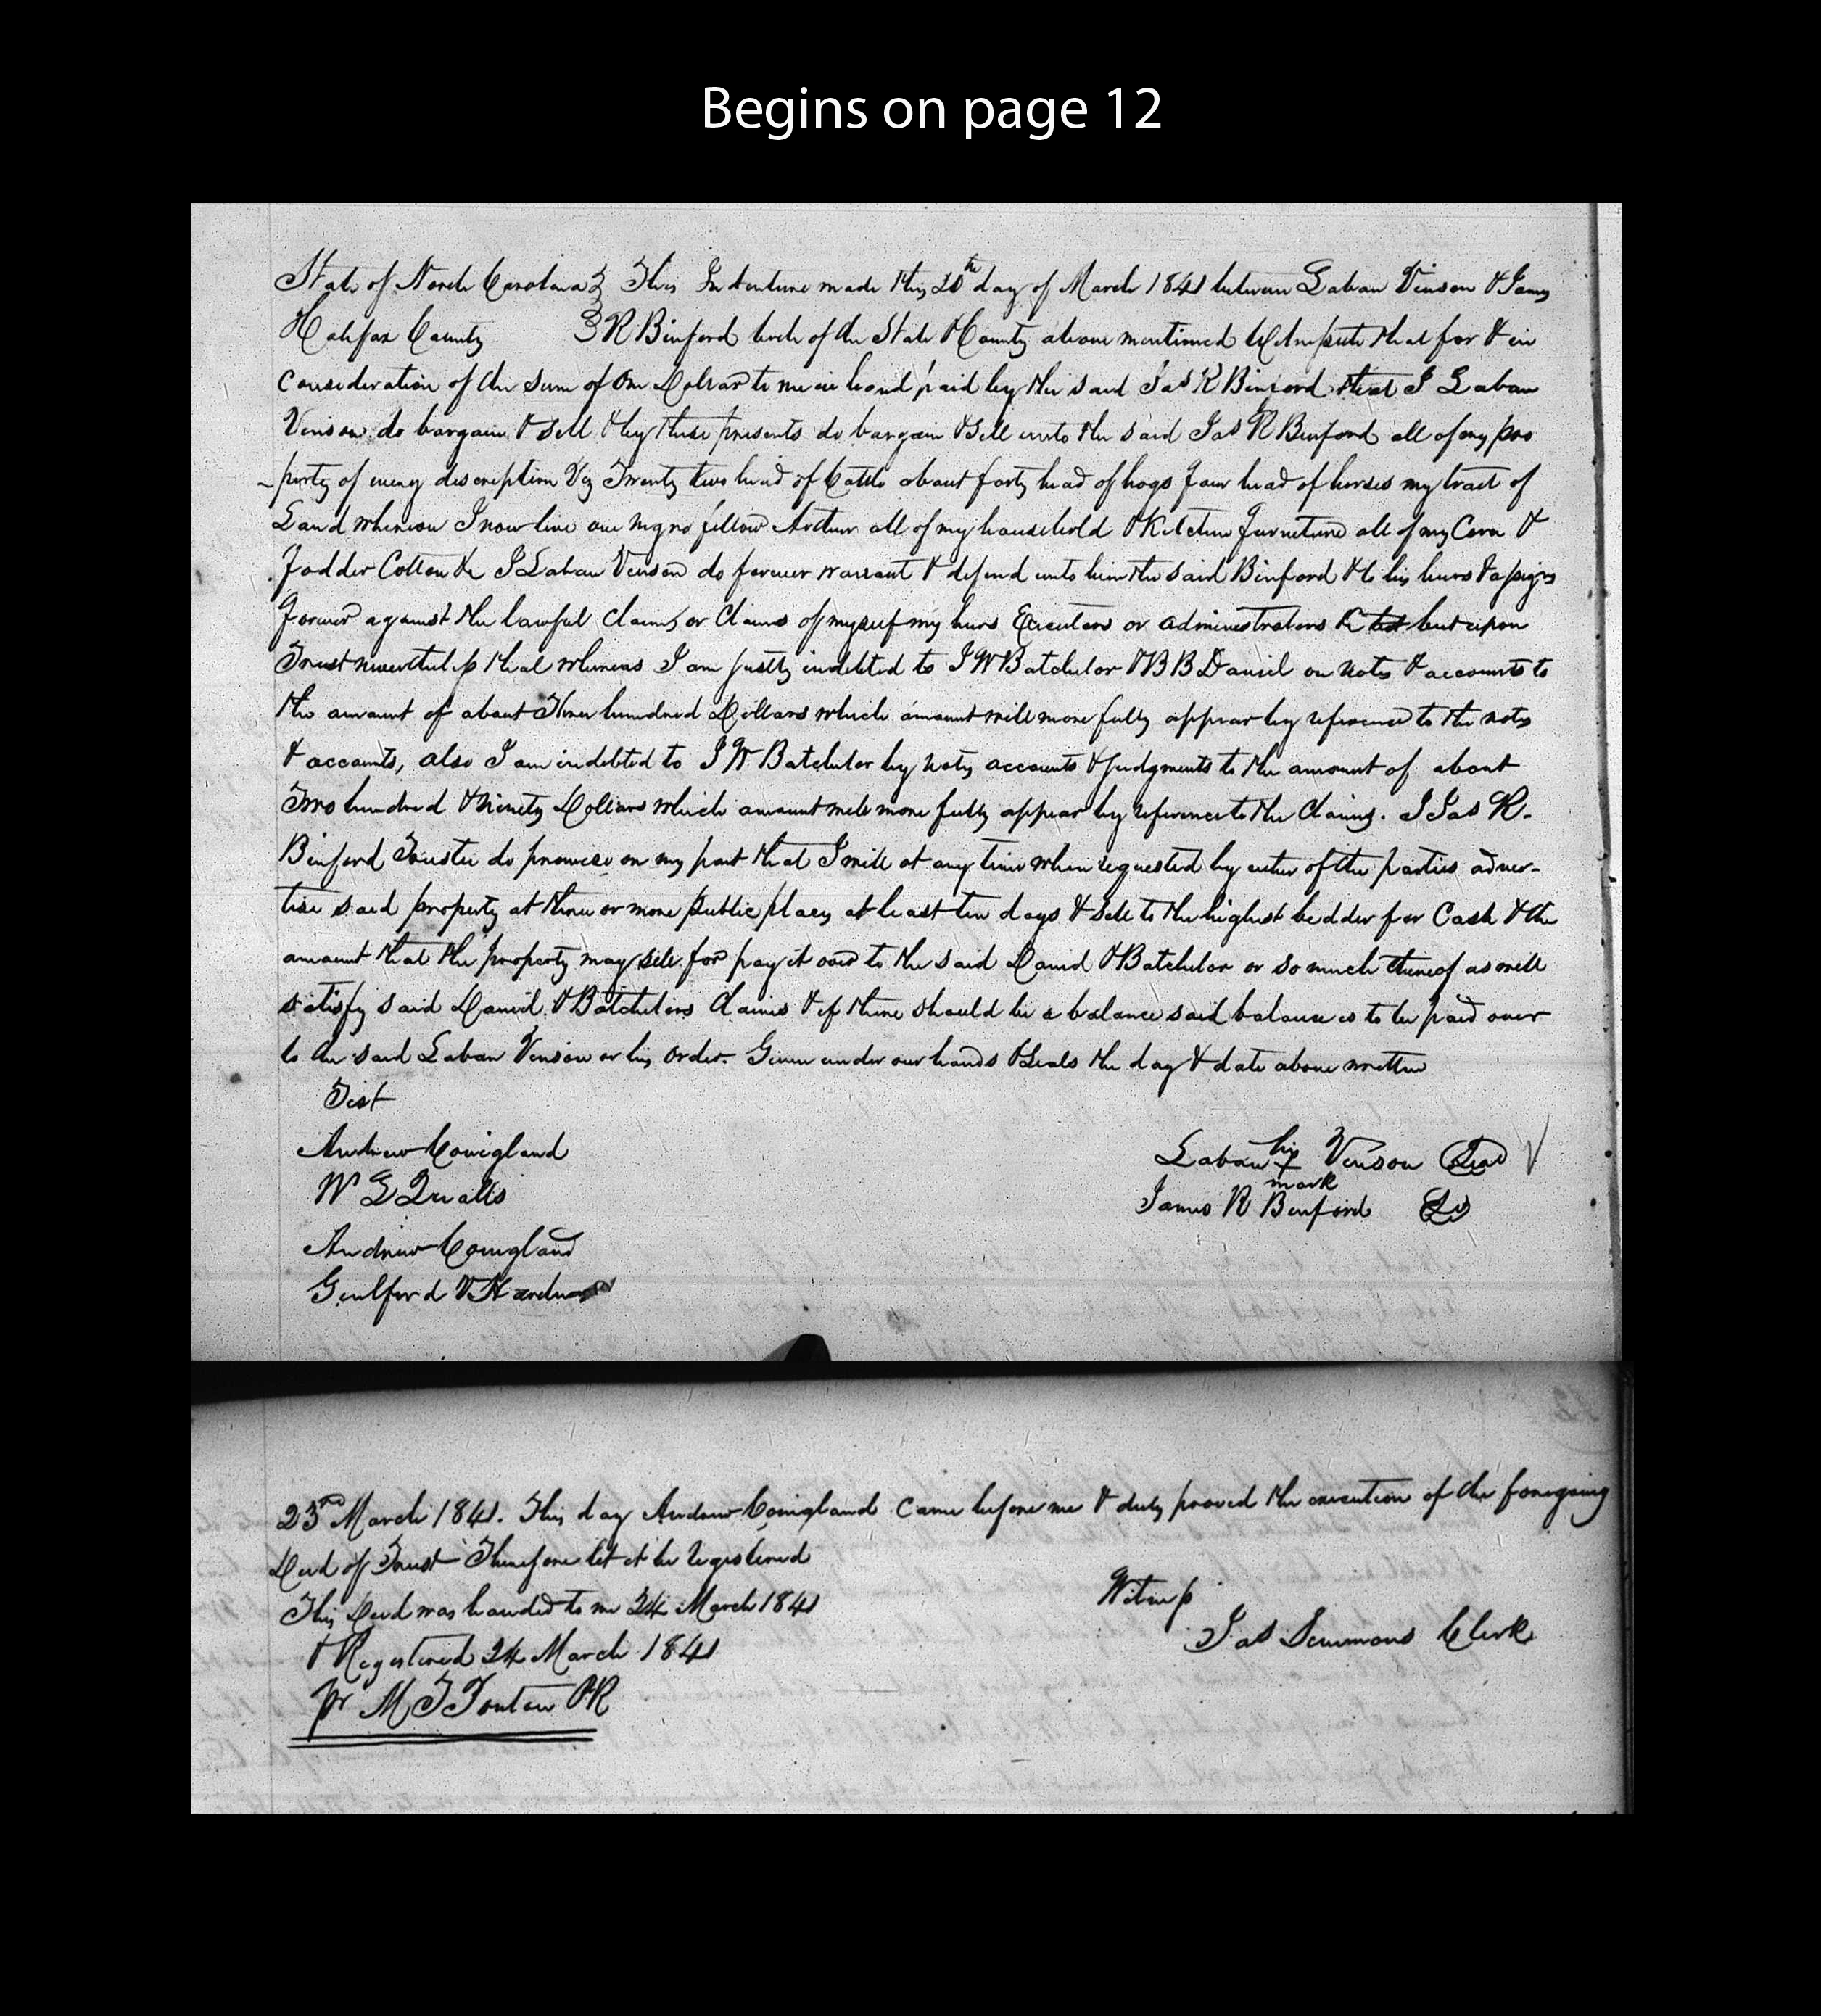 Begins on page 12
State of North Carolina } This Indenture made this 20th day of March 1841 between Laban Vinson & James
Halifax County } R Binford both of the State & County above mentioned Witnesseth that for & in
consideration of the sum of One Dollar to me in hand paid by the said Jas R Binford that I Laban
Vinson do bargain & sell & by these presents do bargain & sell unto the said Jas R Binford all of my pro
-perty of every description Viz Twenty two head of Cattle about forty head of hogs four head of horses my tract of
Land whereon I now live one negro fellow Arthur all of my household & Kitchen furniture all of my Corn &
Fodder Cotton &c I Laban Vinson do forever warrant & defend unto him the said Binford & to his heirs & assigns
forever against the lawful claims or claims of myself my heirs Executors or administrators &c but upon
Trust nevertheless that whereas I am justly indebted to J W Batchelor & B B Daniel on notes & accounts to
the amount of about Three hundred Dollars which amount will more fully appear by reference to the notes
& accounts, also I am indebted to J W Batchelor by notes accounts & judgments to the amount of about
Two hundred & ninety Dollars which amount will more fully appear by reference to the claims. I Jas R.
Binford Trustee do promise on my part that I will at any time when requested by either of the parties adver-
tise said property at three or more public places at least ten days & sell to the highest bedder for Cash & the
amount that the property may sell for pay it over to the said Daniel & Batchelor or so much thereof as will
satisfy said Daniel & Batchelors claims & if there should be a balance said balance is to be paid over
to the said Laban Vinson or his order. Given under our hands & seals the day & date above written
Test
Andrew Conigland
W L Qualls
Andrew Conigland
Guilford V
Laban his X mark Vinson Seal
James R Binford
23rd March 1841. This day Andrew Conigland came before me & duly proved the execution of the foregoing
Deed of Trust Therefore let it be registered
Witness
Jas Simmons Clerk
This Deed was handed to me 24 March 1841
& Registered 24 March 1841
pr M T Ponton PR